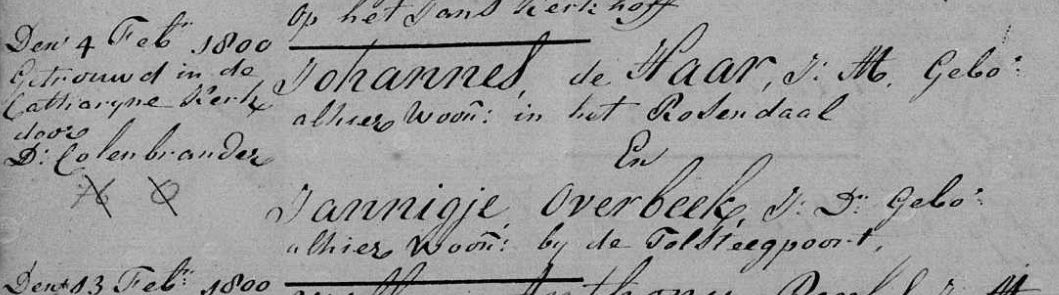 op het Jans Kerkhoff
Den 4 Feb:r 1800
Getrouwd in de
Catharyne Kerk
door
D: Colenbrander
Johannes de Haar, J: M. Gebo:
alhier Woon: in het Rosendaal
En
Jannigje Overbeek, J: D: Gebo:
alhier Woon: by de Tolsteegpoort,
Den 13 Feb:r 1800
Anthony